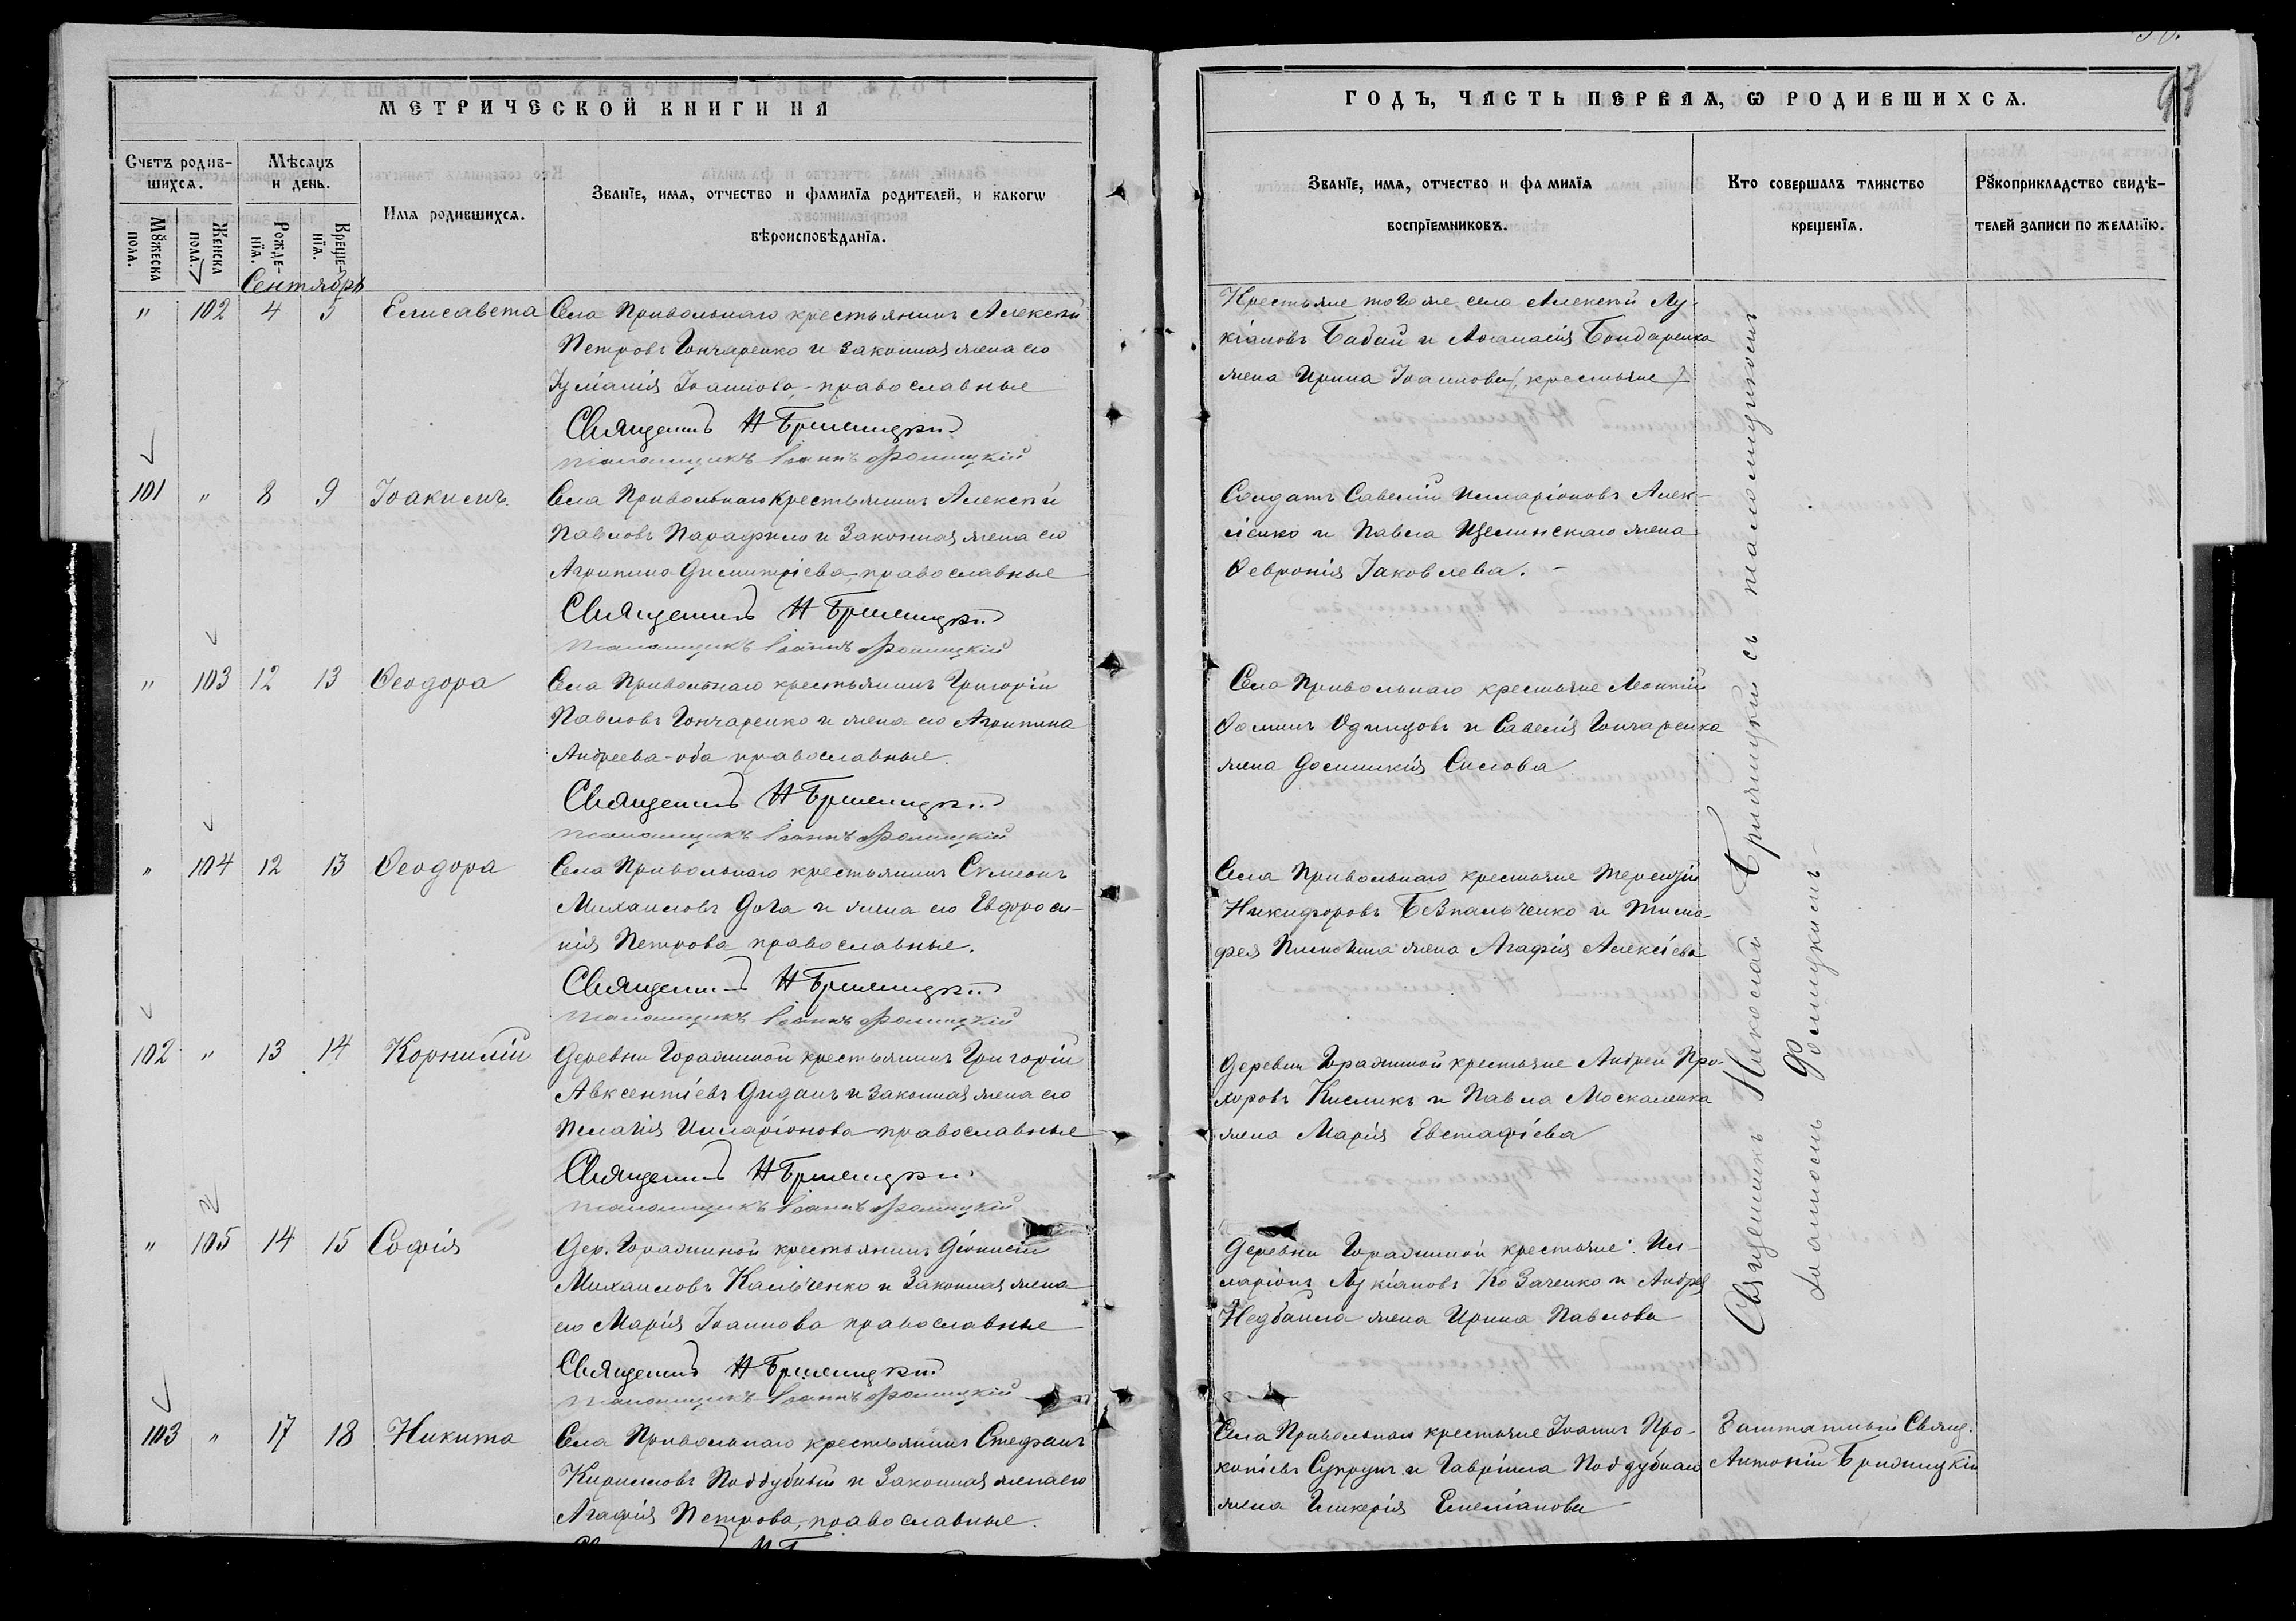 МЕТРИЧЕСКОЙ КНИГИ НА
Счетъ родив-
шихся.
Мѣсяцъ
и день.
Имя родившихся.
Званїе, имя, отчество и фамилїя родителей, и какогѡ
вѣроисповѣданїя.
Мꙋжеска
пола.
Женска
пола.
Рожде-
нїя.
Креще-
нїя.
Сентябрь
" 102 4 5 Елисавета Села Привольнаго крестьянинъ Алексѣй
Петровъ Гончаренко и законная жена его
Іуліанія Іоаннова, - православные
Священникъ Н Бришицкій
псаломщикъ Іоаннъ Фомицкій
101 " 8 9 Іоакимъ. Села Привольнаго крестьянинъ Алексѣй
Павловъ Парафило и законная жена его
Агрипина Димитріева, православные
Священникъ Н Бришицкій
псаломщикъ Іоаннъ Фомицкій
" 103 12 13 Ѳеодора Села Привольнаго крестьянинъ Григорій
Павловъ Гончаренко и жена его Агрипина
Андреева - оба православные.
Священникъ Н Бришицкій
псаломщикъ Іоаннъ Фомицкій
" 104 12 13 Ѳеодора Села Привольнаго крестьянинъ Сѵмеонъ
Михаиловъ Дога и жена его Евфроси-
нія Петрова православные.
Священникъ Н Бришицкій
псаломщикъ Іоаннъ Фомицкій
102 " 13 14 Корнилій Деревни Горажиной крестьянинъ Григорій
Авксентіевъ Диданъ и законная жена его
Пелагія Илларіонова православные
Священникъ Н Бришицкій
псаломщикъ Іоаннъ Фомицкій
" 105 14 15 Софія Дер. Горажиной крестьянинъ Діонисій
Михаиловъ Кальченко и законная жена
его Марія Іоаннова православные
Священникъ Н Бришицкій
псаломщикъ Іоаннъ Фомицкій
103 " 17 18 Никита Села Привольнаго крестьянинъ Стефанъ
Кирилловъ Поддубный и законная жена его
Агафія Петрова, православные.
ГОДЪ, ЧАСТЬ ПЕРВАЯ, Ѡ РОДИВШИХСЯ.
Званїе, имя, отчество и фамилїя
воспрїемниковъ.
Кто совершалъ таинство
крещенїя.
Рꙋкоприкладство свидѣ-
телей записи по желанїю.
Крестьяне того же села Алексѣй Лу-
кіановъ Бабай и Аѳанасія Бондаренка
жена Ирина Іоаннова (крестьяне)
Солдатъ Савелій Илларіоновъ Алек-
сіенко и Павла Щелинскаго жена
Ѳевронія Іаковлева.
Села Привольнаго крестьяне Леонтій
Ѳоминъ Одинцовъ и Савелія Гончаренка
жена Домникія Силова
Села Привольнаго крестьяне Терентій
Никифоровъ Безпальченко и Тимо-
фея жена Агафія Алексіева
Деревни Горажиной крестьяне Андрей Про-
хоровъ Кисликъ и Павла Москаленка
жена Марія Евстафіева
Деревни Горажиной крестьяне: Ил-
ларіонъ Лукіановъ Козаченко и Андрея
Недбайла жена Ирина Павлова
Села Привольнаго крестьяне Іоаннъ Про-
копіевъ Супрунъ и Гавріила Поддубнаго
жена Гликерія Емеліанова
Священникъ Николай Бришицкій съ псаломщикомъ
Іоанномъ Фомицкимъ
Заштатный Свящ.
Антоній Бришицкій